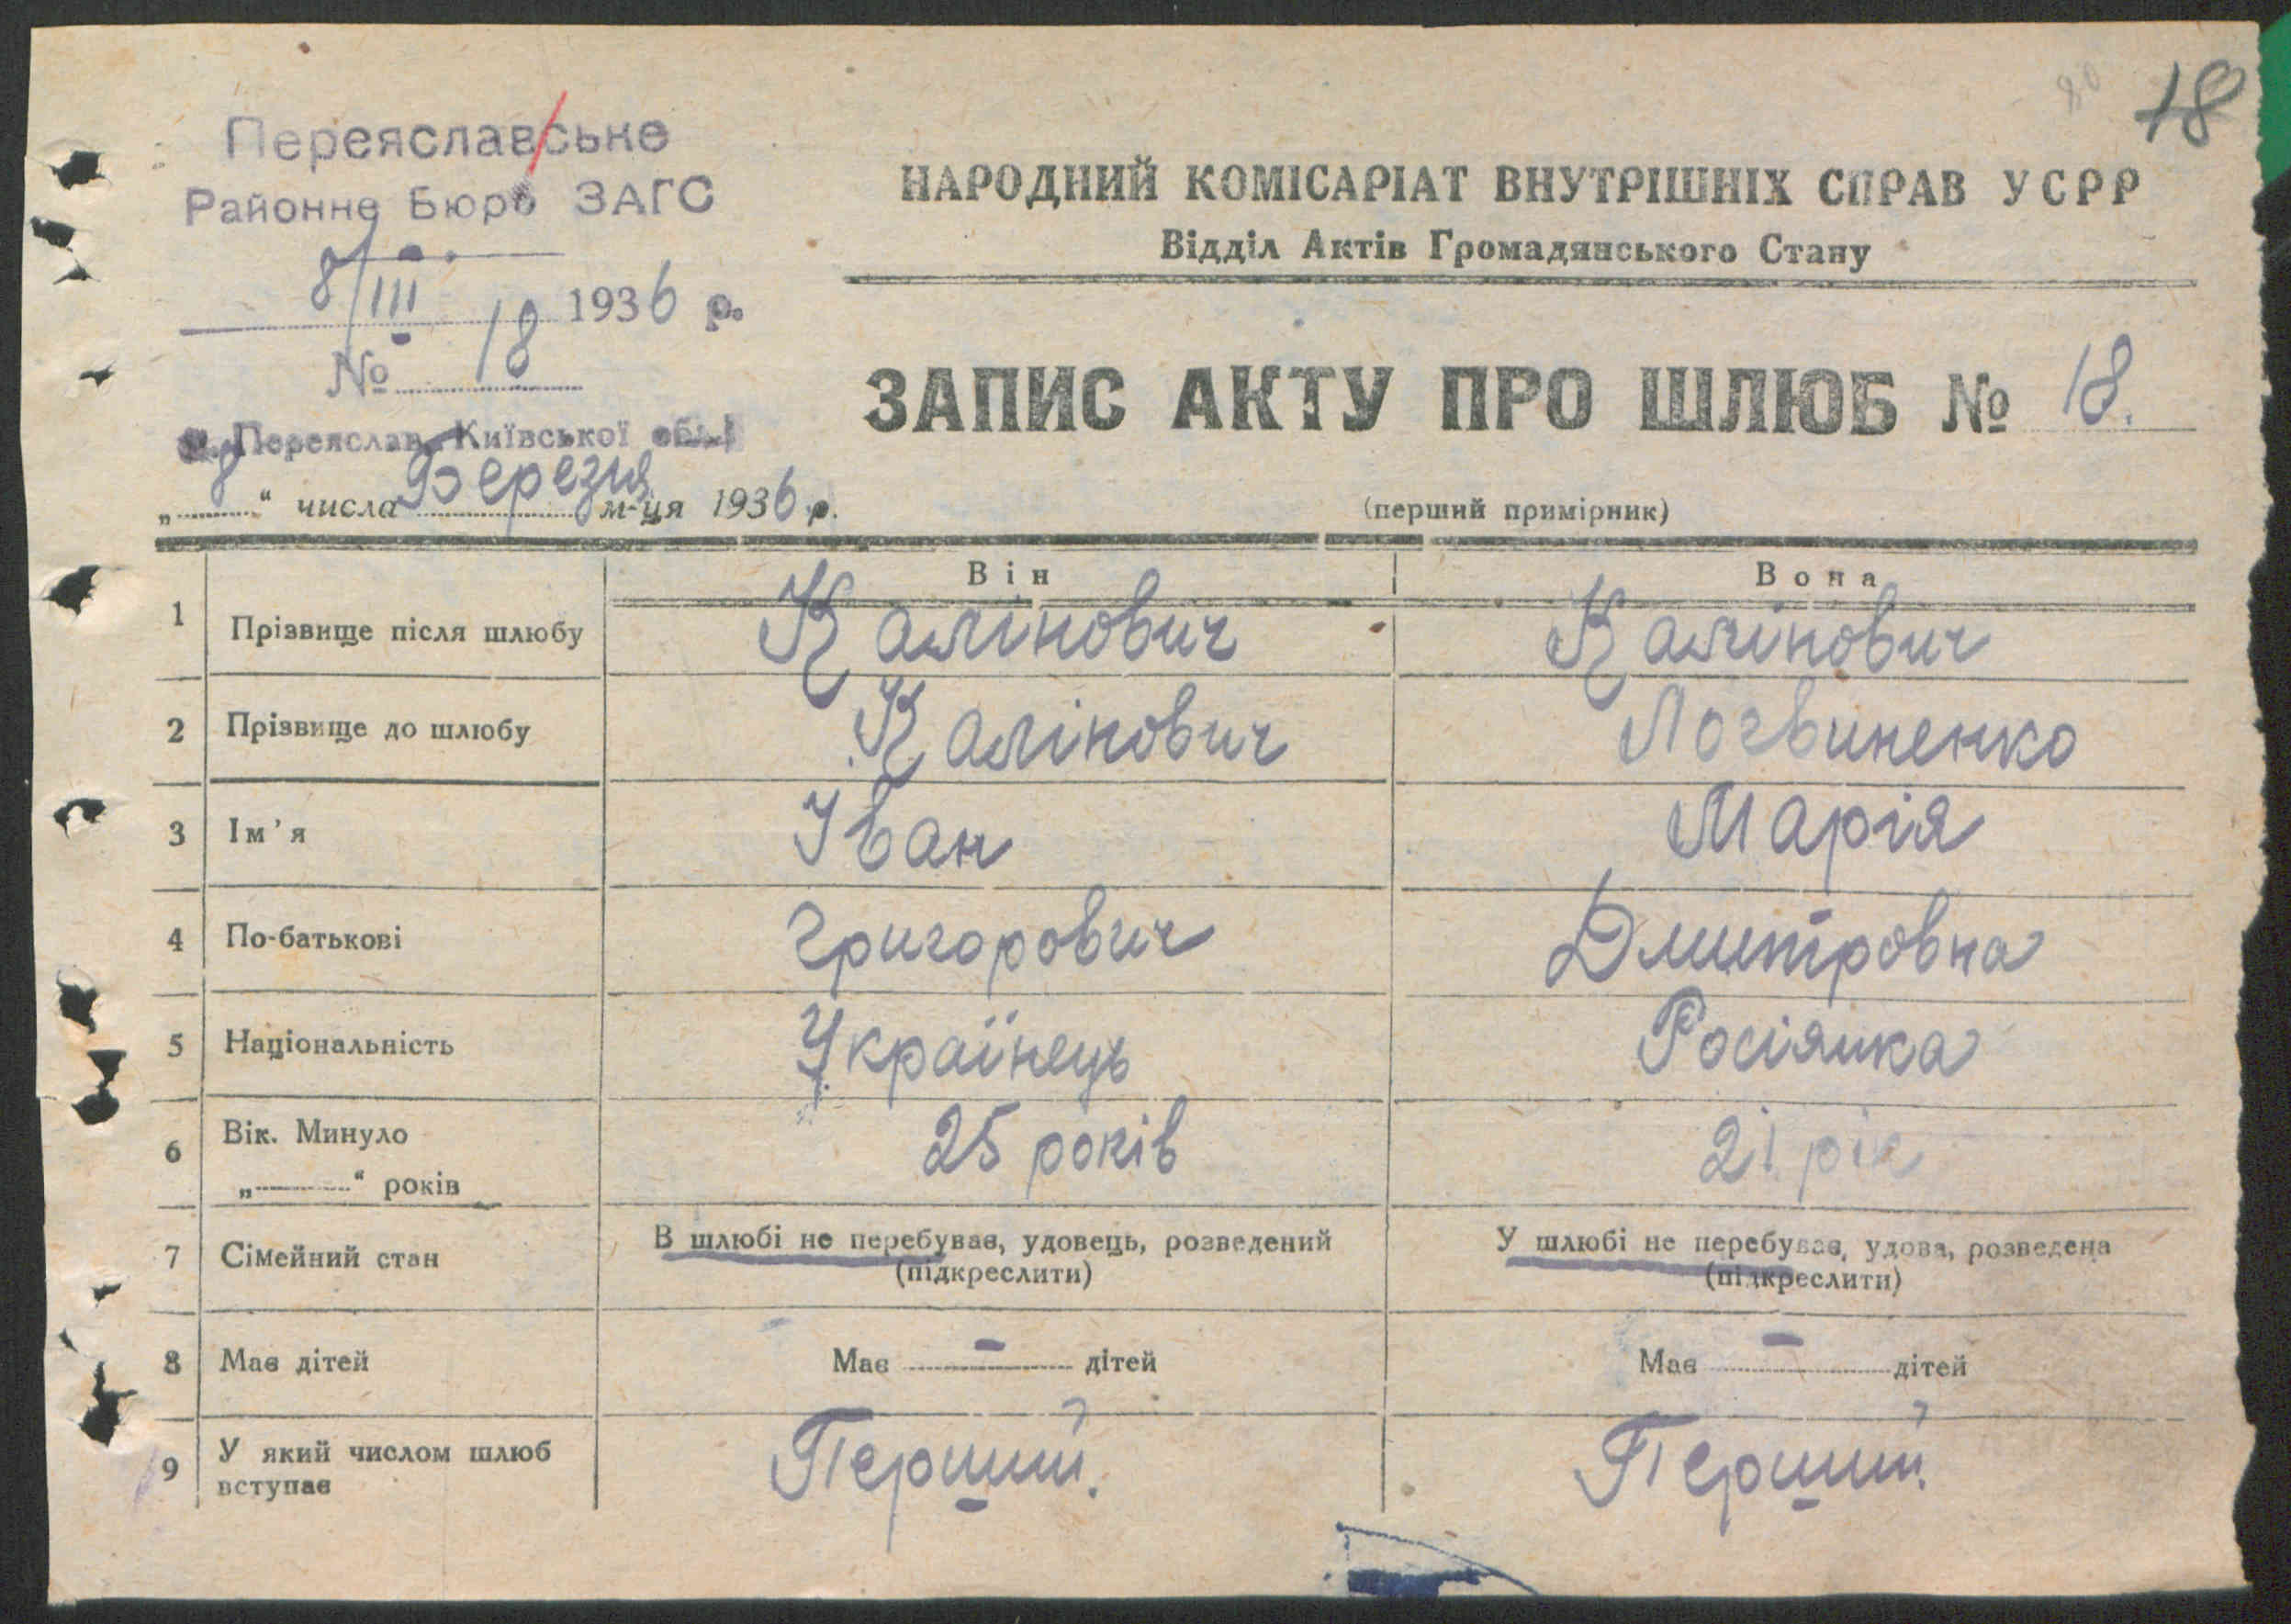 18
Переяславське
Районне Бюро ЗАГС
8/III 1936 р.
№ 18
м. Переяслав, Київської обл.
„8“ числа Березня м-ця 1936 р.
НАРОДНИЙ КОМІСАРІАТ ВНУТРІШНІХ СПРАВ УСРР
Відділ Актів Громадянського Стану
ЗАПИС АКТУ ПРО ШЛЮБ № 18.
(перший примірник)
Він Вона
1 Прізвище після шлюбу Калінович Калінович
2 Прізвище до шлюбу Калінович Логвиненко
3 Ім'я Іван Марія
4 По-батькові Григорович Дмитровна
5 Національність Українець Росіянка
6 Вік. Минуло
„ “ років 25 років 21 рік
7 Сімейний стан В шлюбі не перебував, удовець, розведений У шлюбі не перебуває, удова, розведена
(підкреслити) (підкреслити)
8 Має дітей Має – дітей Має – дітей
9 У який числом шлюб
вступає Перший. Перший.